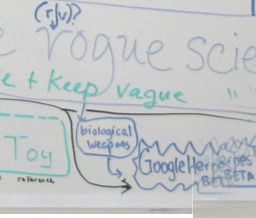 (r/v)?
e rogue scie
e + Keep vague " "
biological
weapons
Toy
Google Herpes
BETA
reference